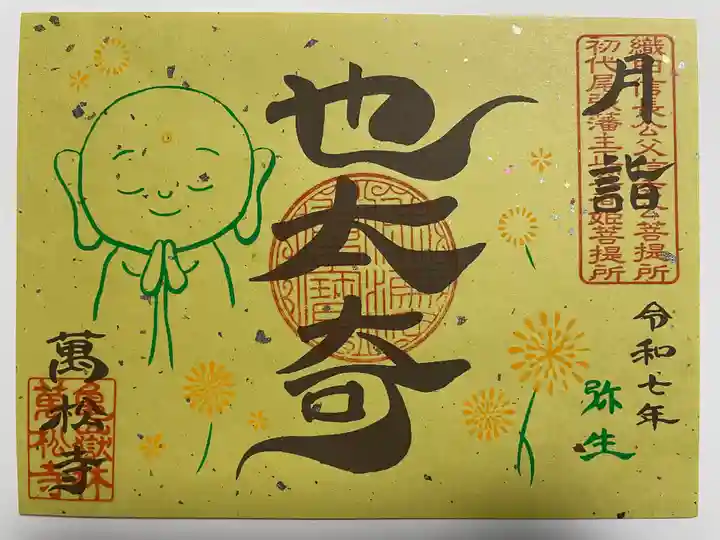 織田信長公父信秀公菩提所
初代尾張藩主正室春姫菩提所
月詣
令和七年
弥生
也太奇
萬松寺
亀嶽林
萬松寺